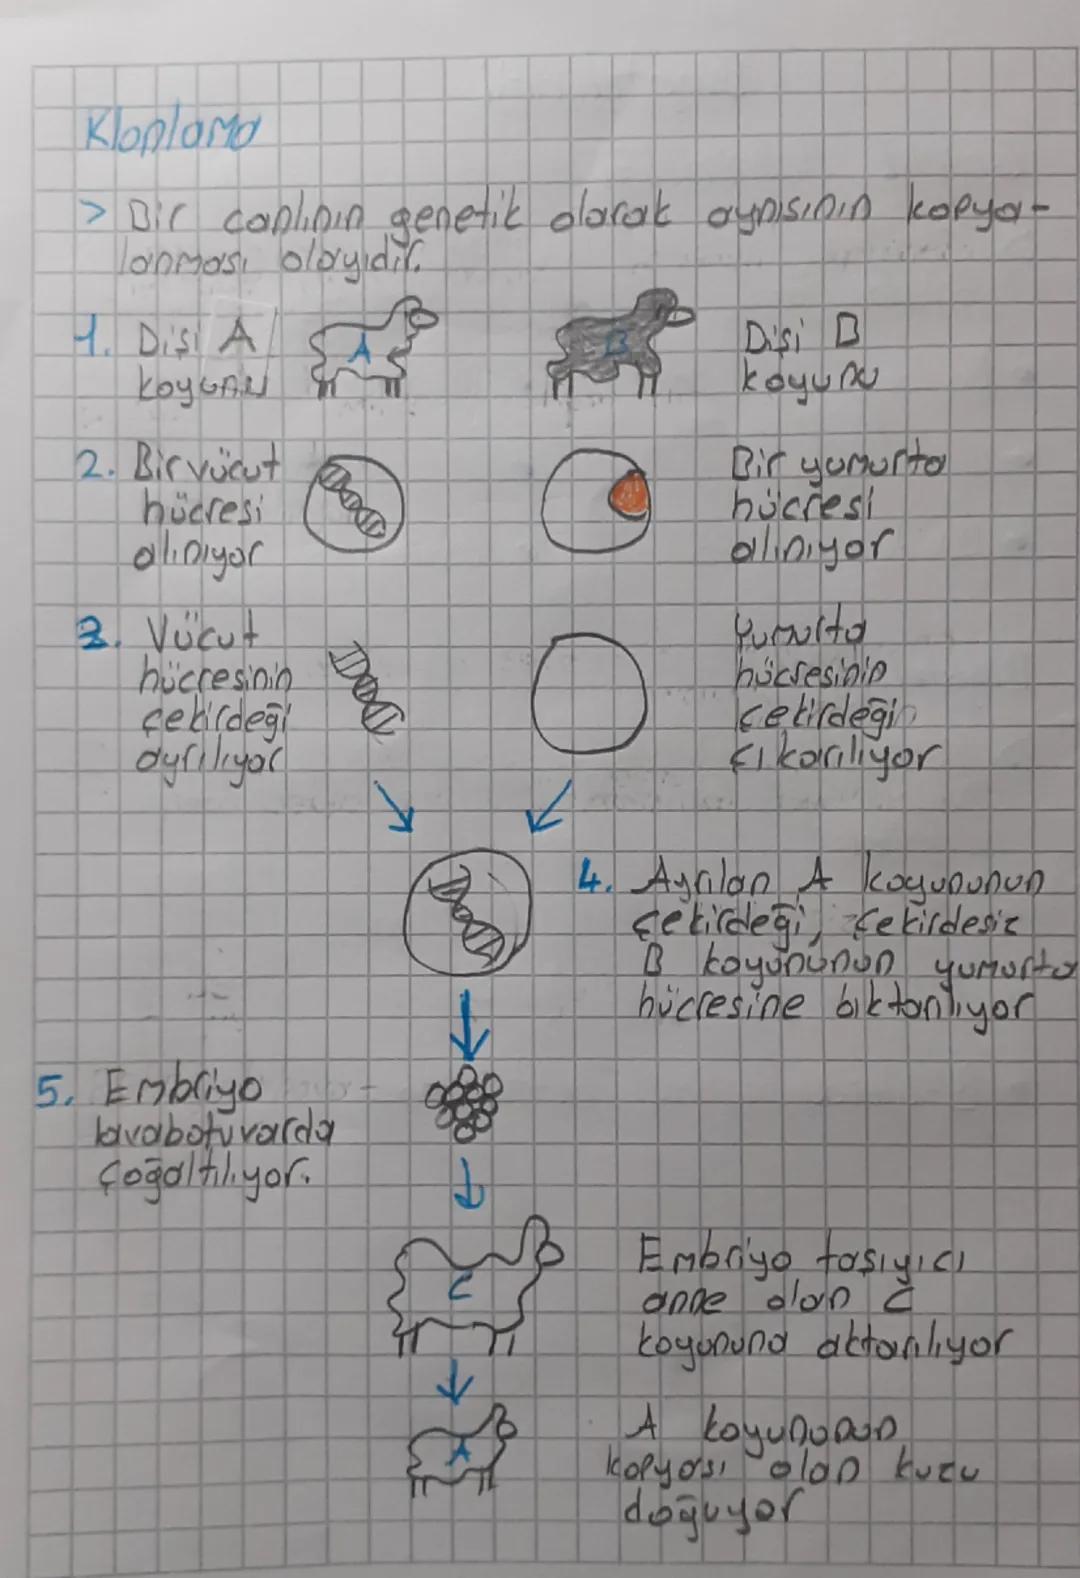 Klonlama
> Bir canlının genetik olarak aynısının kopya-
lanması olayıdır.
1. Dişi A
koyunu
A
B
Dişi B
koyunu
2. Bir vücut
hücresi
alınıyor
Bir yumurta
hücresi
alınıyor
3. Vücut
hücresinin
çekirdeği
ayrılıyor
Yumurta
hücresinin
çekirdeği
çıkarılıyor
4. Ayrılan A koyununun
çekirdeği, çekirdesiz
B koyununun yumurta
hücresine aktarılıyor
5. Embriyo
lavabotuvarda
çoğaltılıyor.
C
Embriyo taşıyıcı
anne olan C
koyununa aktarılıyor
A
A koyununun
kopyası olan kuzu
doğuyor